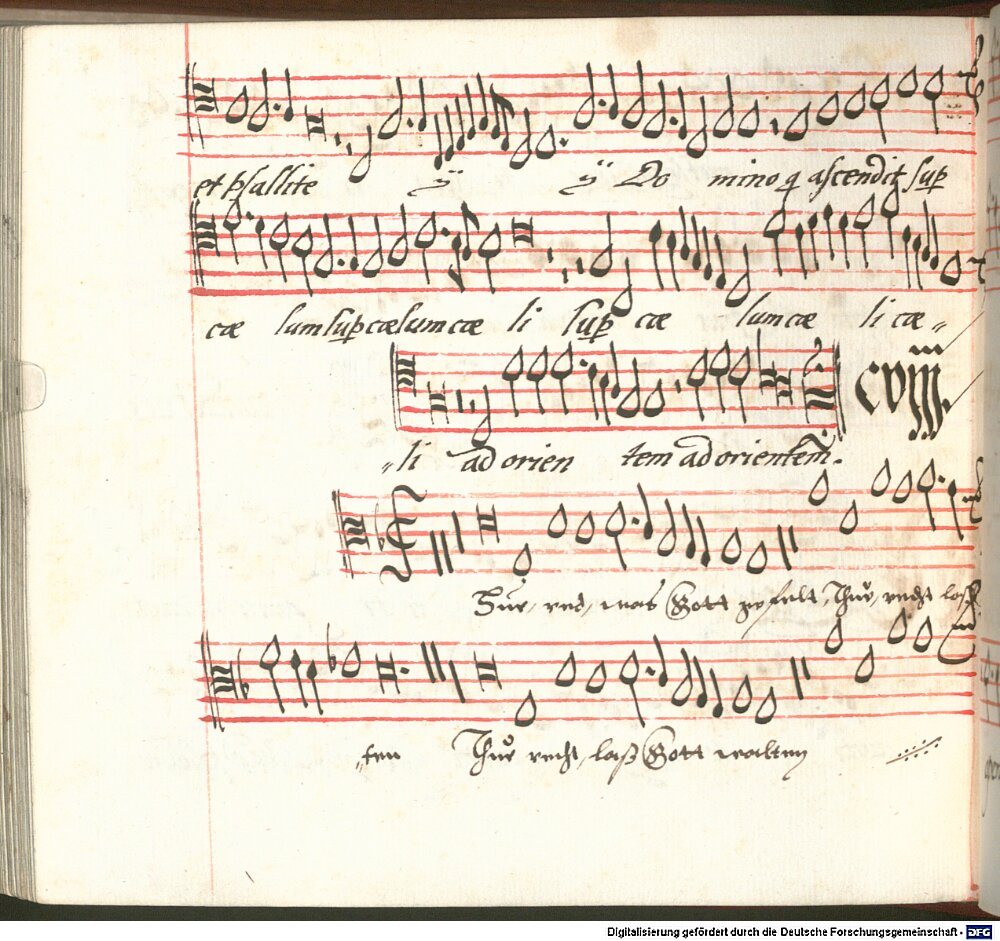 et psallite ÿ ÿ Do mino q ascendit sup
cæ lum sup cælum cæ li sup cæ lum cæ li cæ„
CVIII.
„li ad orien tem ad orientem.
red, was Gott gefelt, Thue, recht laß
„ten Thue recht, laß Gott walten
Digitalisierung gefördert durch die Deutsche Forschungsgemeinschaft - DFG